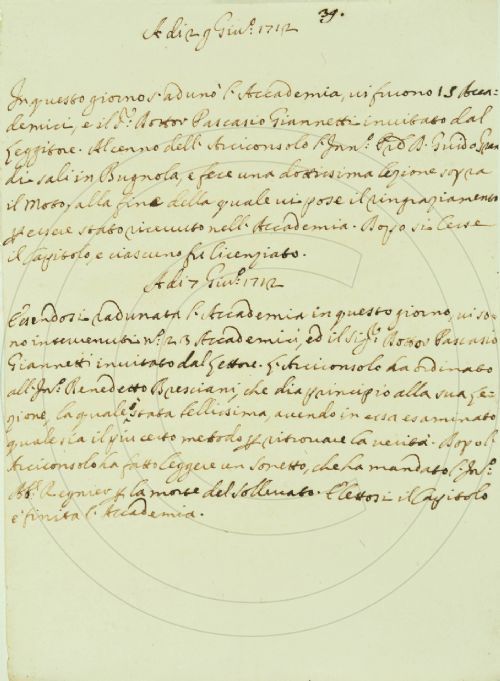 39.
A di 29 Giug.o 1712
In questo giorno s'adunò l'Accademia, vi furono 15 Acca-
demici, e il S.r Dottor Pascasio Giannetti invitato dal
Leggitore. Al cenno dell'Arciconsolo l'Inn.o P. D. Guido Gran
di salì in Bugnola, e fece una dottissima lezione sopra
il Moto, alla fine della quale vi pose il ringraziamento
p essere stato ricevuto nell'Accademia. Dopo si lesse
il Capitolo, e ciascuno fu licenziato.
A di 7 1712
Essendosi radunata l'Accademia in questo giorno, vi so-
no intervenuti n.o 23 Accademici, ed il Sig.r Dottor Pascasio
Giannetti invitato dal Lettore. L'Arciconsolo ha ordinato
all'Inn.o Benedetto Bresciani, che dia principio alla sua Le-
zione, la quale è stata bellissima, avendo in essa esaminato
quale sia il più certo metodo p ritrovare la verità. Dopo l'
Arciconsolo ha fatto leggere un Sonetto, che ha mandato l'Inn.o
Ab.e Regnier p la morte del Sollevato. E lettosi il Capitolo
è finita l'Accademia.